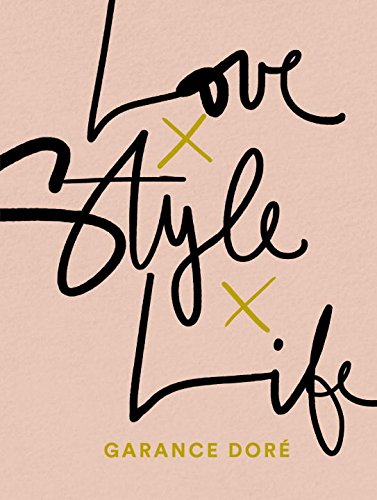 Love
×
Style
×
Life
GARANCE DORÉ